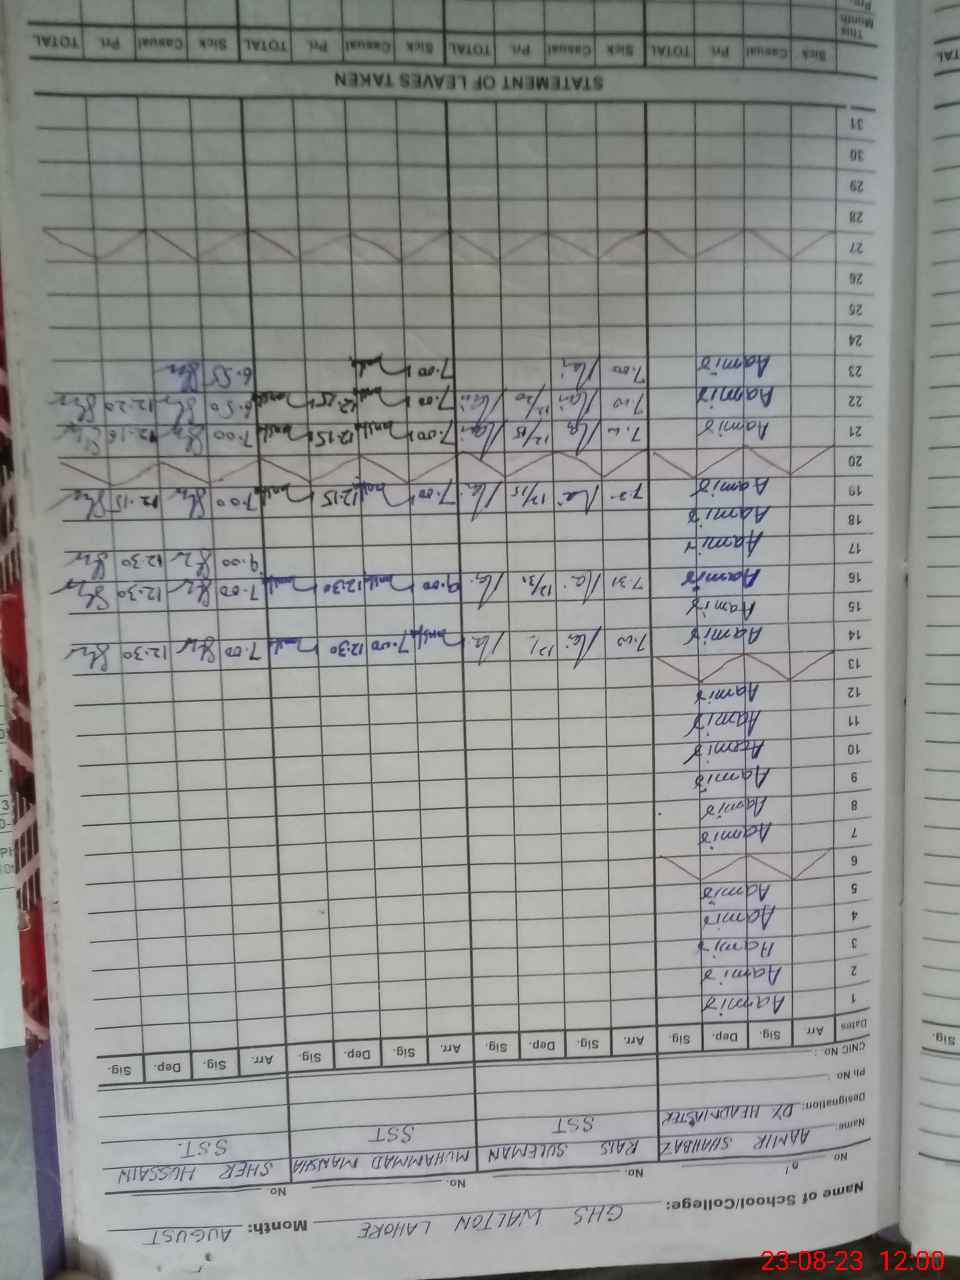 Name of School/College: GHS WALTON LAHORE Month: AUGUST
No. No. No. No.
Name: AAMIR SHAHBAZ RAIS SULEMAN MUHAMMAD MANSHA SHER HUSSAIN
Designation: DY. HEADMASTER SST SST S.ST.
Ph No. :
CNIC No. :
Dates Arr. Sig. Dep. Sig. Arr. Sig. Dep. Sig. Arr. Sig. Dep. Sig. Arr. Sig. Dep. Sig.
1 Aamir
2 Aamir
3 Aamir
4 Aamir
5 Aamir
6
7 Aamir
8 Aamir
9 Aamir
10 Aamir
11 Aamir
12 Aamir
13
14 Aamir 7.00 7.00 12.30 7.00 12.30
15 Aamir
16 Aamir 7.31 12/31 9.00 12.30 7.00 12.30
17 Aamir 9.00 12.30
18 Aamir
19 Aamir 12/15 7.00 12.15 7.00 12.15
20
21 Aamir 12/15 7.00 12.15 7.00 12.16
22 Aamir 12/20 7.00 12.15 6.50 12.20
23 Aamir 7.00 7.00 6.55
24
25
26
27
28
29
30
31
STATEMENT OF LEAVES TAKEN
Sick Casual Pri. TOTAL Sick Casual Pri. TOTAL Sick Casual Pri. TOTAL Sick Casual Pri. TOTAL
This Month
Pre.
Sig.
23-08-23 12:00